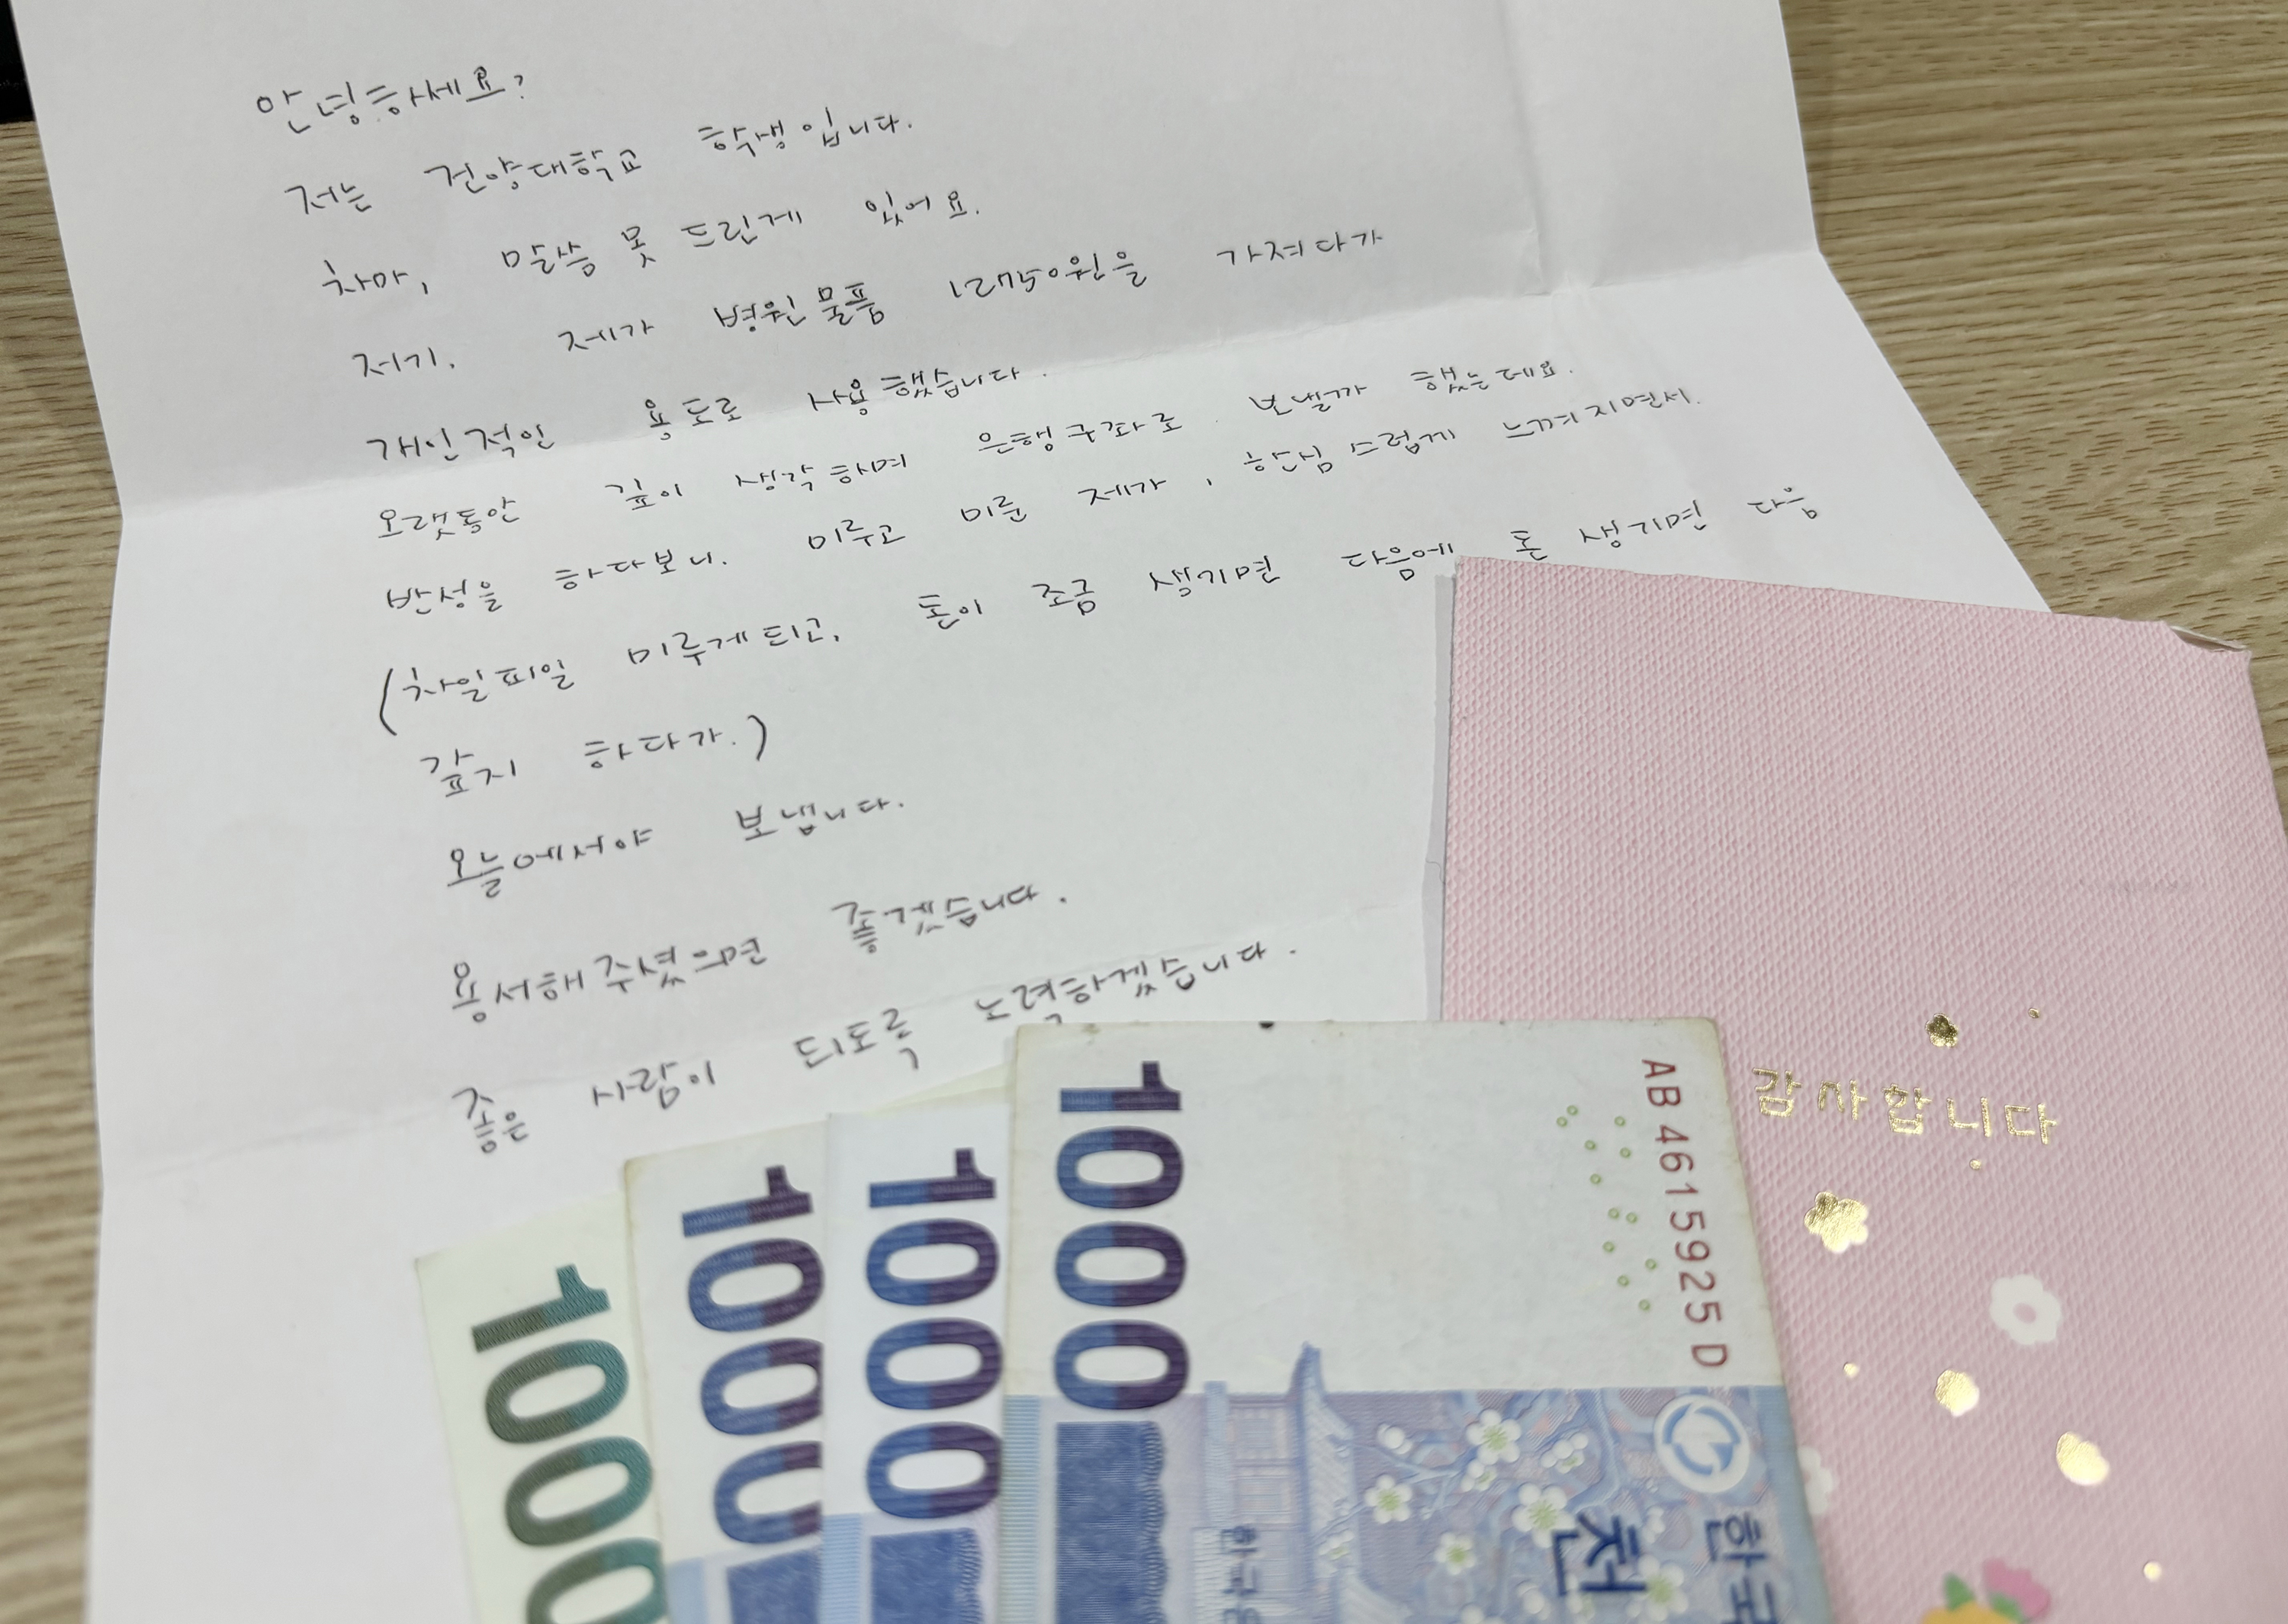 안녕하세요?
저는 건양대학교 학생입니다.
차마, 말씀 못 드린게 있어요.
저기. 제가 병원물품 원을 가져다가
개인적인 용도로 사용했습니다.
오랫동안 깊이 생각하며 은행구좌로 보낼까 했는데요.
반성을 하다보니. 미루고 미룬 제가, 한심스럽게 느껴지면서.
(차일피일 미루게되고, 돈이 조금 생기면 다음에 돈 생기면 다음
갚지 하다가.)
오늘에서야 보냅니다.
용서해주셨으면 좋겠습니다.
좋은 사람이 되도록 노력하겠습니다.
감사합니다
1000
1000
1000
1000
AB4615925D
천
한국
한국은